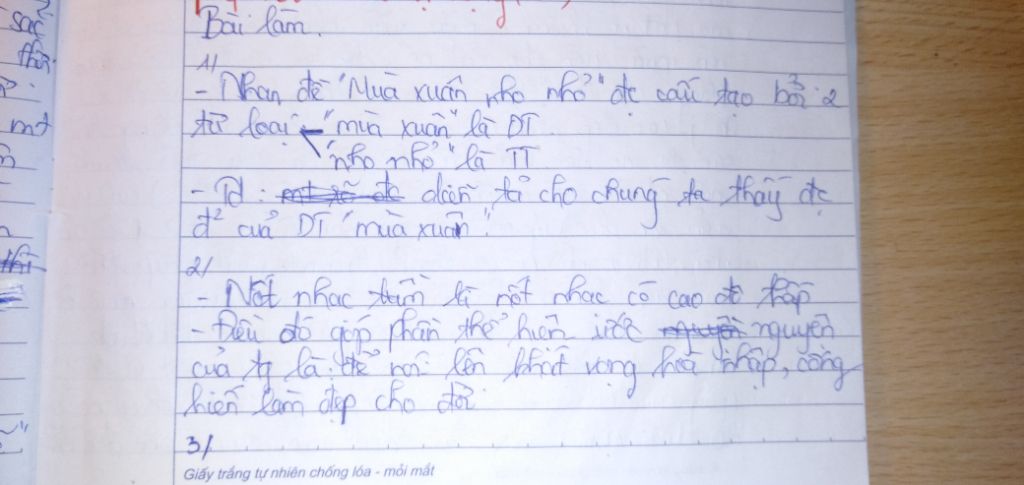 sắc
Bài làm.
1/
- Nhan đề "Mùa xuân nho nhỏ" đc cấu tạo bởi 2
từ loại "mùa xuân" là DT
"nho nhỏ" là TT
- Td: diễn tả cho chúng ta thấy đc
đ² của DT "mùa xuân".
2/
- Nốt nhạc trầm là nốt nhạc có cao độ thấp
- Điều đó góp phần thể hiện ước nguyện
của tg là: để nói lên khát vọng hoà nhập, cống
hiến làm đẹp cho đời.
3/
Giấy trắng tự nhiên chống lóa - mỏi mắt